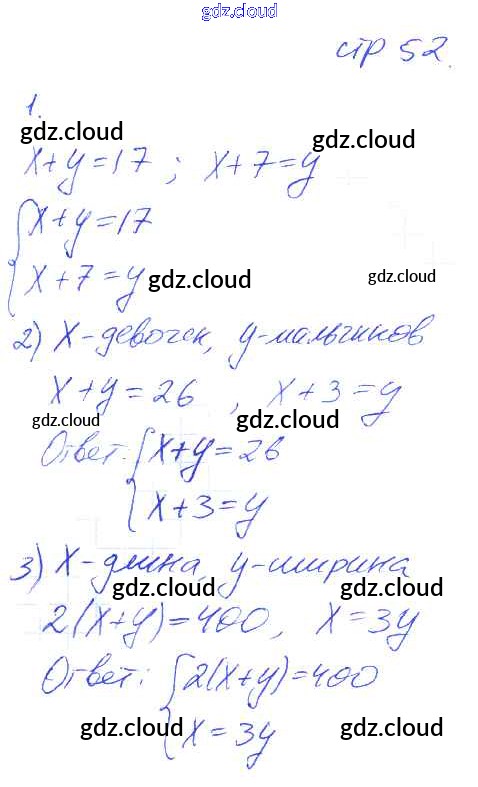 gdz.cloud
стр 52.
1.
gdz.cloud gdz.cloud
x+y=17 ; x+7=y
{x+y=17
x+7=y gdz.cloud gdz.cloud
2) x-девочек, y-мальчиков
x+y=26 , x+3=y
gdz.cloud gdz.cloud
Ответ: {x+y=26
x+3=y
3) x-длина, y-ширина
gdz.cloud gdz.cloud
2(x+y)=400, x=3y
Ответ: {2(x+y)=400
gdz.cloud gdz.cloud gdz.cloud
x=3y